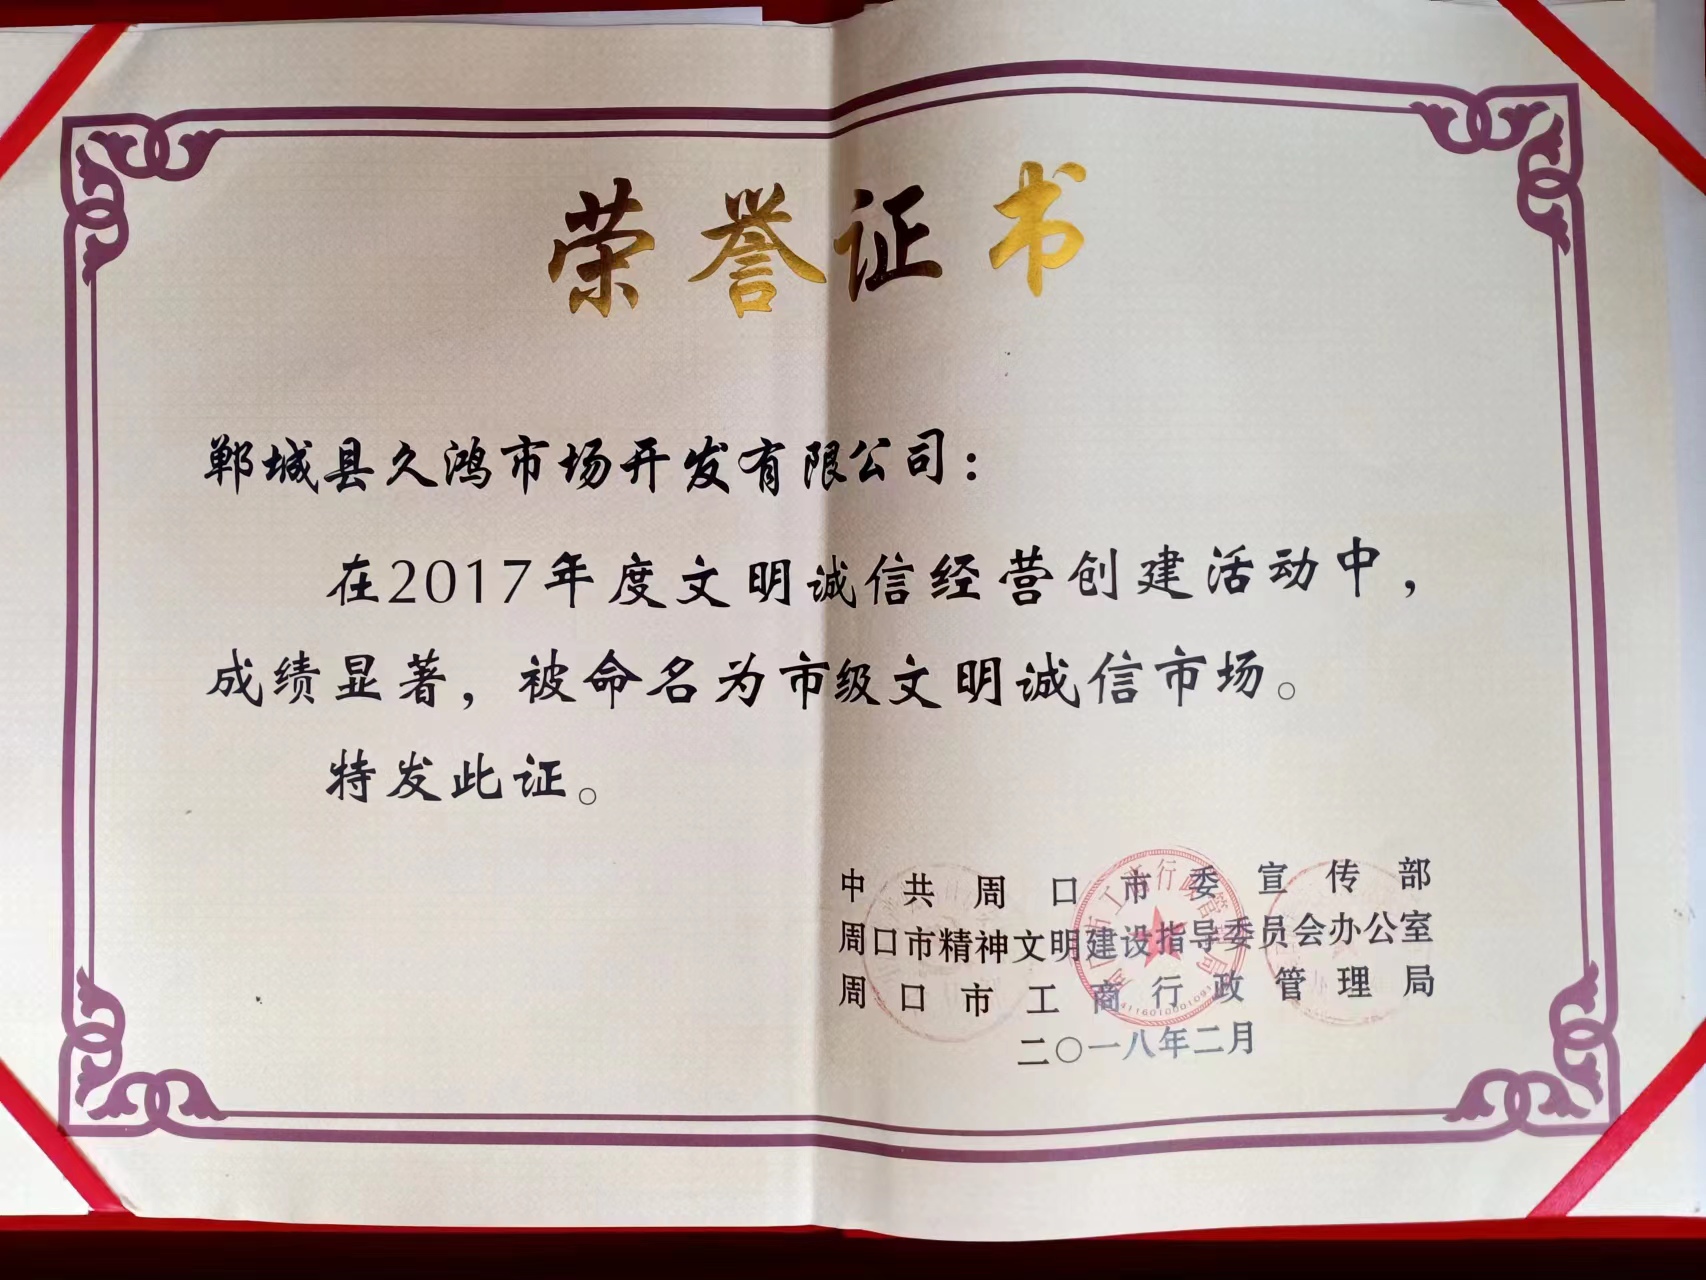 荣誉证书
郸城县久鸿市场开发有限公司：
在2017年度文明诚信经营创建活动中，
成绩显著，被命名为市级文明诚信市场。
特发此证。
中共周口市委宣传部
周口市精神文明建设指导委员会办公室
周口市工商行政管理局
二〇一八年二月
周口市工商行政管理局